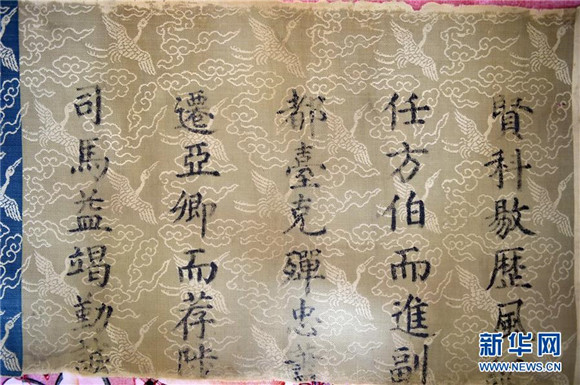 賢科敭歷風
任方伯而進副
都臺克殫忠
遷亞卿而荐陟
司馬益竭勤
新华网
NEWS.CN